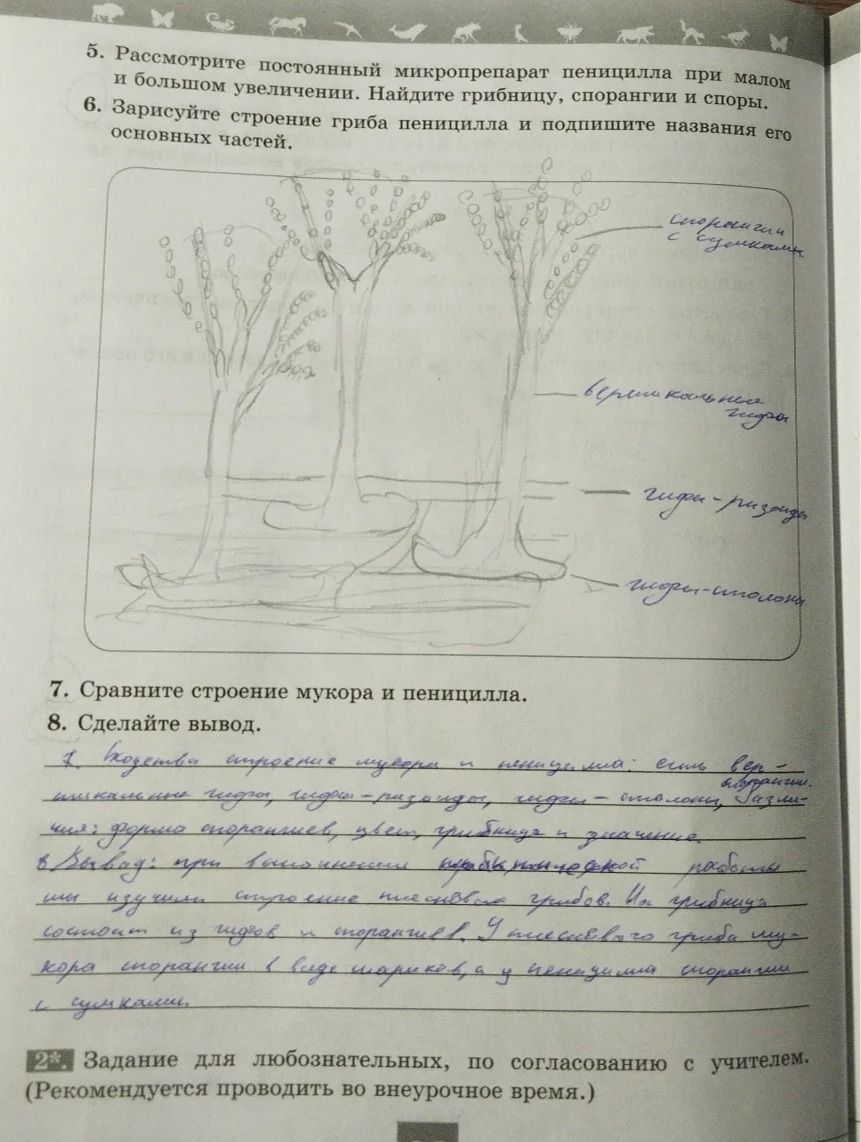 5. Рассмотрите постоянный микропрепарат пеницилла при малом
и большом увеличении. Найдите грибницу, спорангии и споры.
6. Зарисуйте строение гриба пеницилла и подпишите названия его
основных частей.
спорангии
с сумками
вертикальные
гифы
гифы-ризоиды
гифы-столоны
7. Сравните строение мукора и пеницилла.
8. Сделайте вывод.
7. Сходства строение мукора и пеницилла: есть вер-
тикальные гифы, гифы-ризоиды, гифы-столоны, спорангии. Разли-
чия: форма спорангиев, цвет, грибница и значение.
8 Вывод: при выполнении работы
мы изучили строение грибов. Их грибница
состоит из гифов и спорангиев. У плесневого гриба му-
кора спорангии в виде шариков, а у пеницилла спорангии
с сумками.
2*. Задание для любознательных, по согласованию с учителем.
(Рекомендуется проводить во внеурочное время.)